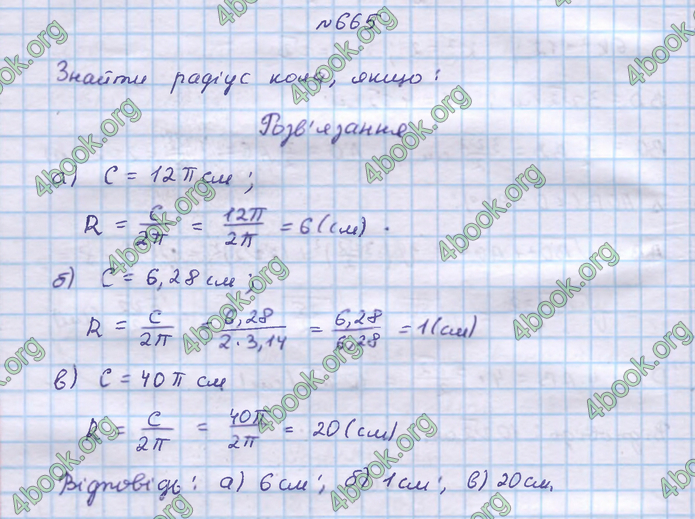 №665
Знайти радіус кола, якщо:
Розв'язання
а) C = 12π см;
R = C/2π = 12π/2π = 6(см).
б) C = 6,28 см;
R = C/2π = 6,28/2·3,14 = 6,28/6,28 = 1(см)
в) C = 40π см
R = C/2π = 40π/2π = 20(см)
Відповідь: а) 6 см; б) 1 см; в) 20 см.
4book.org